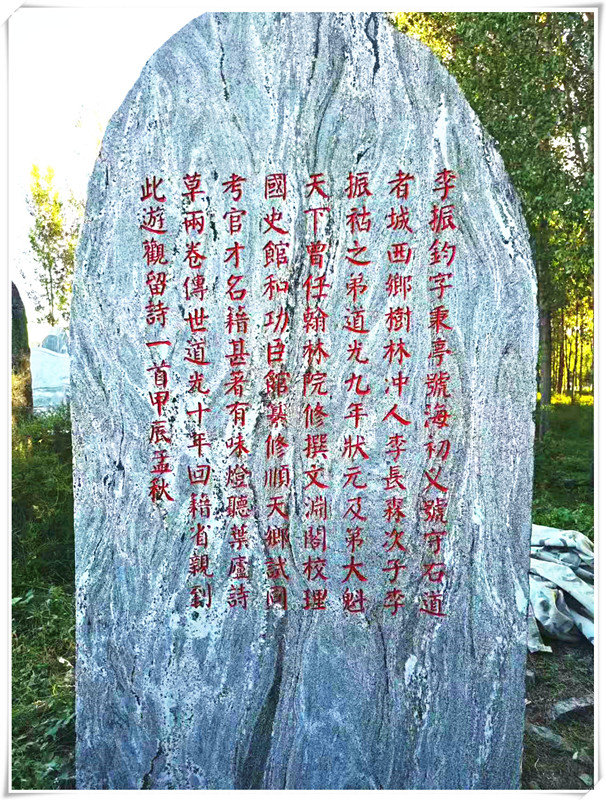 李振鈞字秉亭號海初又號守石道
者城西鄉樹林冲人李長森次子李
振祜之弟道光九年狀元及弟大魁
天下曾任翰林院修撰文淵閣校理
國史館和功臣館纂修順天鄉試同
考官才名籍甚著有味燈聽葉廬詩
草兩卷傳世道光十年回籍省親到
此遊觀留詩一首甲辰孟秋